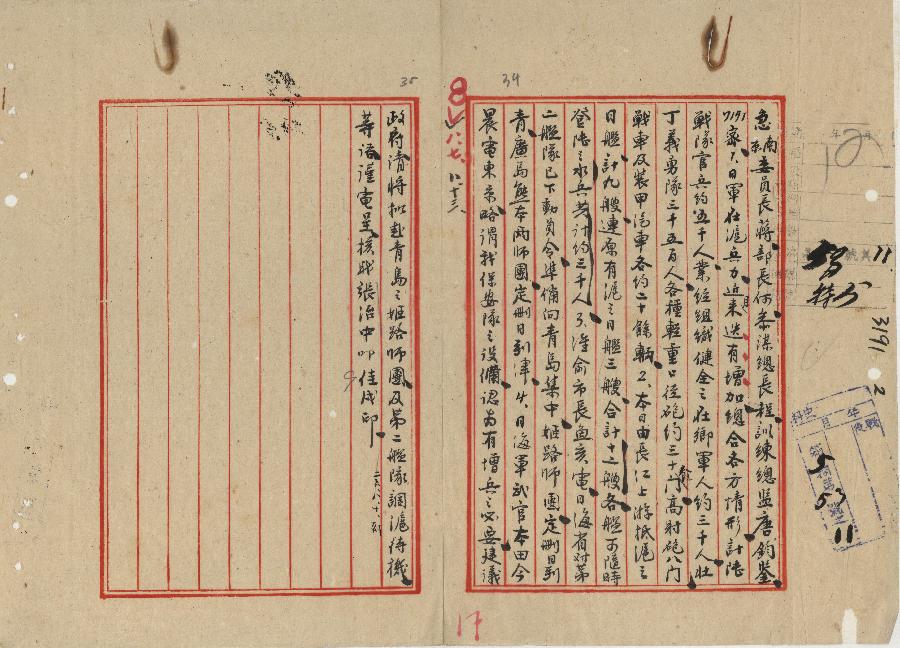 急南京委員長蔣部長何參謀總長程訓練總監唐鈞鑒
7191密1、日軍在滬兵力近來迭有增加總合各方情形計陸
戰隊官兵約五千人業經組織健全之在鄉軍人約三千人壯
丁義勇隊三千五百人各種輕重口徑砲約三十門高射砲八門
戰車及裝甲汽車各約二十餘輛2、本日由長江上游抵滬之
日艦計九艘連原有滬之日艦三艘合計十二艘各艦可隨時
登陸之水兵共計約三千人3、準俞市長魚亥電日海省對第
二艦隊已下動員令準備向青島集中姬路師團定刪日到
青廣島熊本兩師團定刪日到津4、日海軍武官本田今
晨電東京略謂我保安隊之設備認為有增兵之必要建議
政府請將擬赴青島之姬路師團及第二艦隊調滬待機
等語謹電呈核職張治中叩佳戌印
二六、八、十、
35
34
8
八、七、
八十三、
3191
2
11
53
11
17